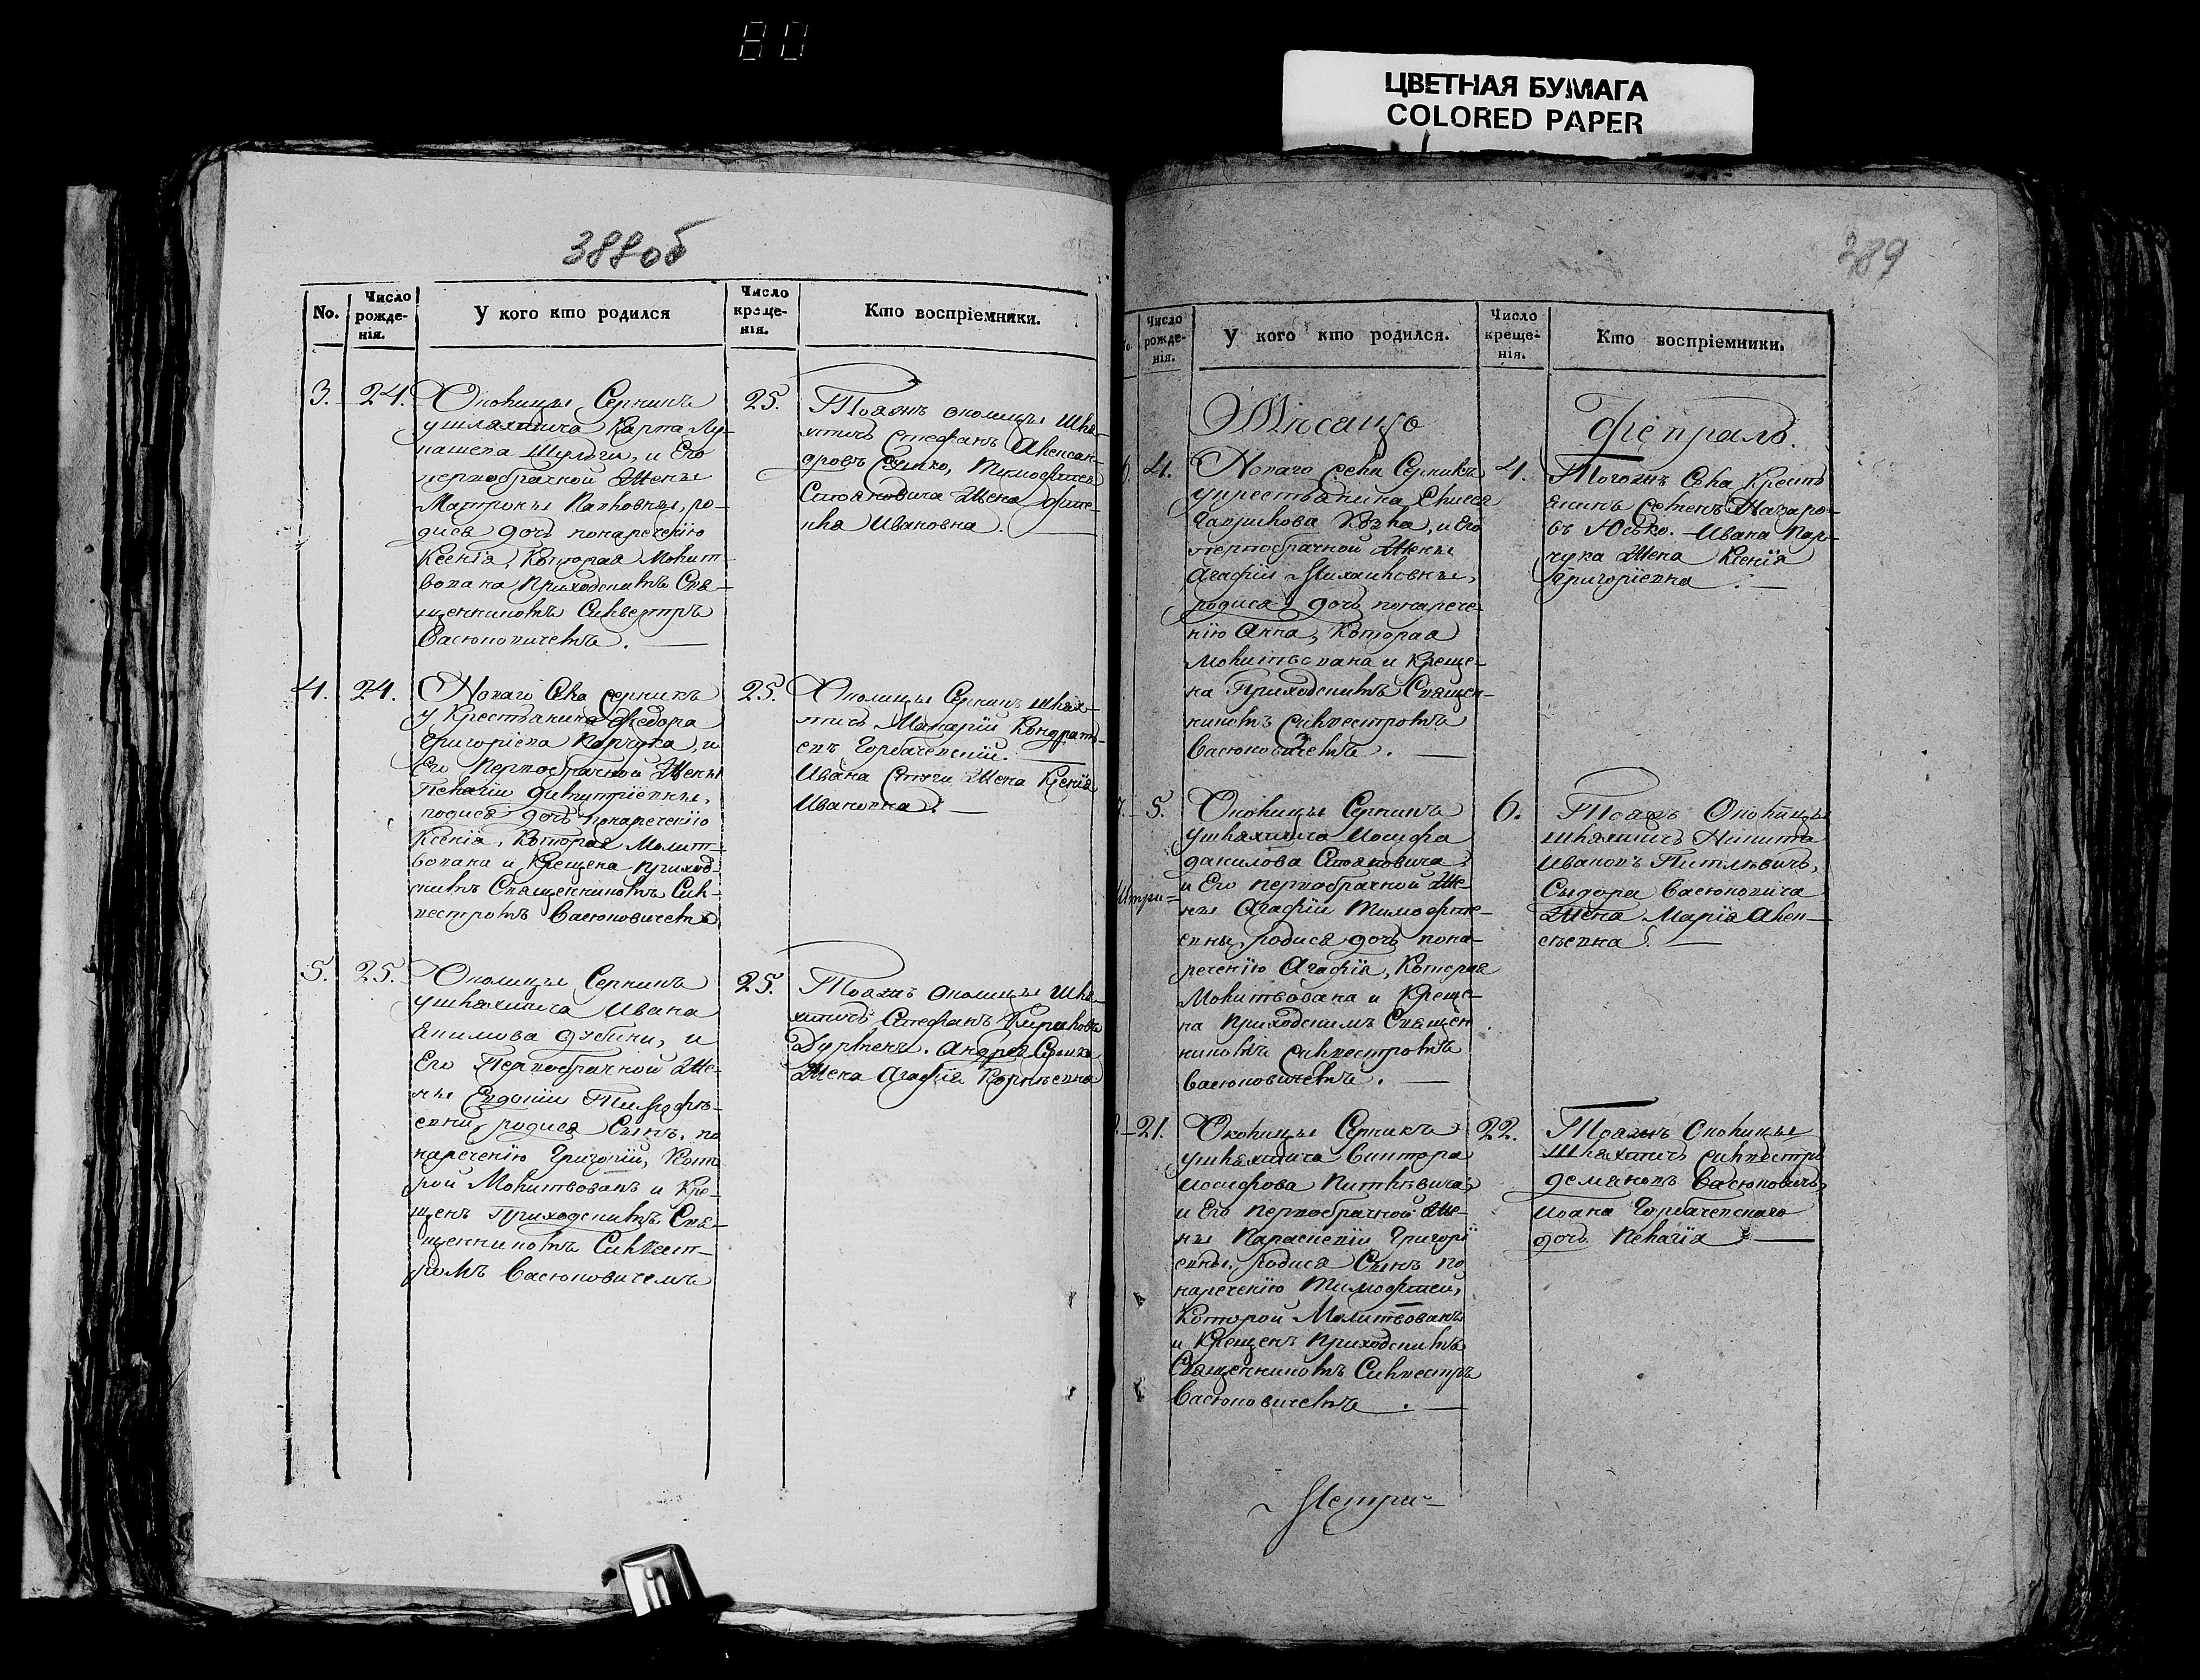 80
ЦВѢТНАЯ БУМАГА
COLORED PAPER
388об
No.
Число рожденія.
У кого кто родился
Число крещенія.
Кто воспріемники.
3.
24.
Околицы Серникъ
у шляхтича Карпа Лу-
кашева Шульги, и Его
первобрачной Жены
Матроны Павловны, ро-
дися дочь понареченію
Ксенія, Которая Молит-
вована Приходскимъ Свя-
щенникомъ Сильвестръ
Васюковичемъ.
25.
Тояжъ околицы шля-
хтичъ Стефанъ Алексан-
дровъ Тимофея
Стояновича Жена
Ивановна.
4.
24.
Новаго Села Серникъ
у Крестьянина Федора
Григоріева Корчука, и
Его Первобрачной Жены
Пелагіи Димитріевны,
родися дочь понареченію
Ксенія, Которая Молит-
вована и Крещена приход-
скимъ Священникомъ Силь-
вестромъ Васюковичемъ
25.
Околицы Серникъ шлях-
тичъ Макарій Кондрать-
евъ Горбачевскій.
Ивана Жена Ксенія
Ивановна.
5.
25.
Околицы Серникъ
у шляхтича Ивана
Якимова Дубини, и
Его Первобрачной Же-
ны Евдокіи Тимофѣ-
евни, родися Сынъ, по
нареченію Григорій, Кото
рой Молитвованъ и Кре-
щенъ Приходскимъ Свя-
щенникомъ Сильвест-
ромъ Васюковичемъ
25.
Тояжъ околицы шля-
хтичъ Стефанъ
Андрея
Жена Агафія Корнѣевна
389
Число рожденія.
У кого кто родился.
Число крещенія.
Кто воспріемники.
Мѣсяцъ
Февраль.
4.
Новаго Села Серникъ
у крестьянина
Гаврилова и Его
первобрачной Жены
Агафіи Михайловны,
родися дочь понарече-
нію Анна, Которая
Молитвована и Креще-
на Приходскимъ Священ-
никомъ Сильвестромъ
Васюковичемъ.
4.
Тогожъ Села Крестъ
янинъ Семенъ Назаро-
въ Юсько. Ивана Кор-
чука Жена Ксенія
Григоріевна
7.
5.
Околицы Серникъ
у шляхтича Иосифа
Данилова Стояновича
и Его первобрачной Же-
ны Агафіи Тимофее-
евны, родися дочь пона-
реченію Агафія, Которая
Молитвована и Креще-
на Приходскимъ Священ
никомъ Сильвестромъ
Васюковичемъ.
6.
Тояжъ Околицы
шляхтичъ Никита
Ивановъ Питкѣвичъ,
Сыдора Васюковича
Жена Марія Алек-
сѣевна.
21.
Околицы Серникъ
у шляхтича Виктора
Иосифова Питкѣвича,
и Его первобрачной Же-
ны Параскевіи Григорі
евны, родися Сынъ по
нареченію Тимофтей,
Которой Молитвованъ
и Крещенъ Приходскимъ
Священникомъ Сильвестръ
Васюковичемъ.
22.
Тояжъ Околицы
шляхтичъ Сильвестръ
Демяновъ Васюковичъ,
Иоана Горбачевскаго
дочь Пелагія
Метри-